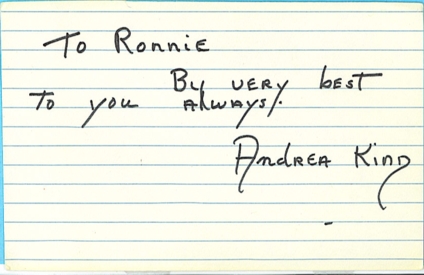 To Ronnie
My very best
To you always!
Andrea King